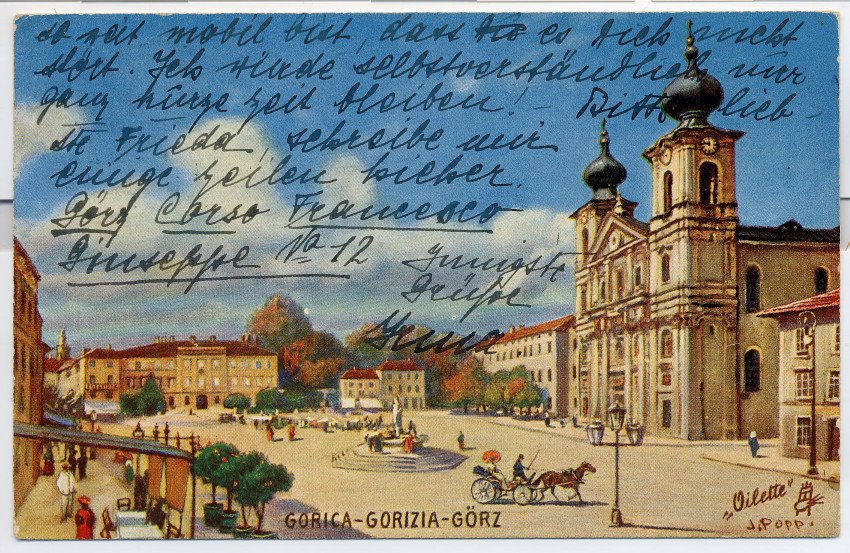 so weit mobil bist, dass es Dich nicht
stört. Ich würde selbstverständlich nur
ganz kurze Zeit bleiben! – Bitte, lieb-
ste Frieda, schreibe mir
einige Zeilen hieher.
Görz Corso Francesco
Giuseppe No 12
Innigste
Grüße
Irma
GORICA-GORIZIA-GÖRZ
„Oilette"
J. POPP.